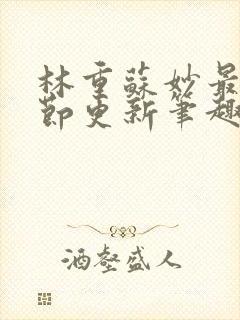 林重蘇妙最
節更新筆趣
酒壑盛人